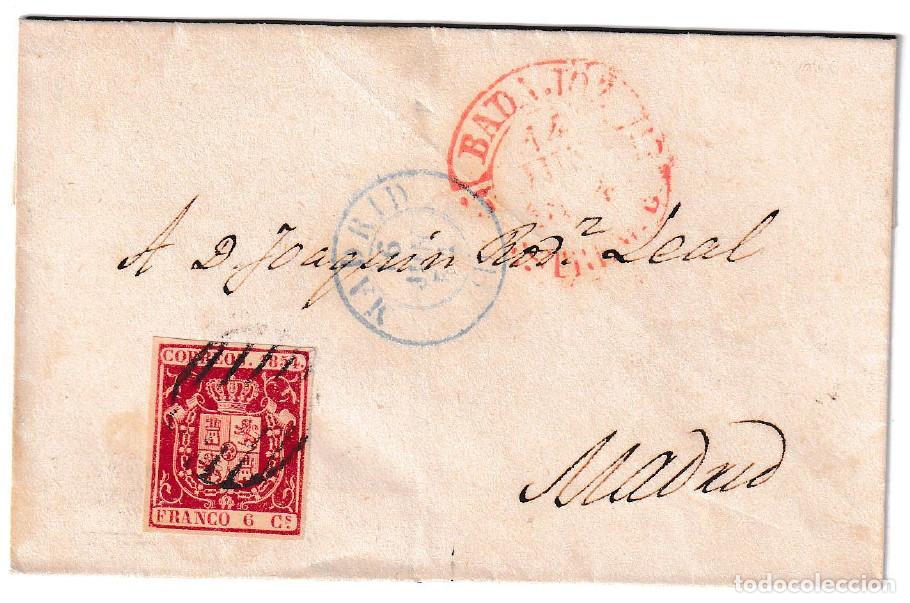 BADAJOZ
14
JUN
MADRID
A D. Joaquin Rod.z Leal
CORREOS. 1854.
FRANCO 6 Cs
Madrid
todocoleccion